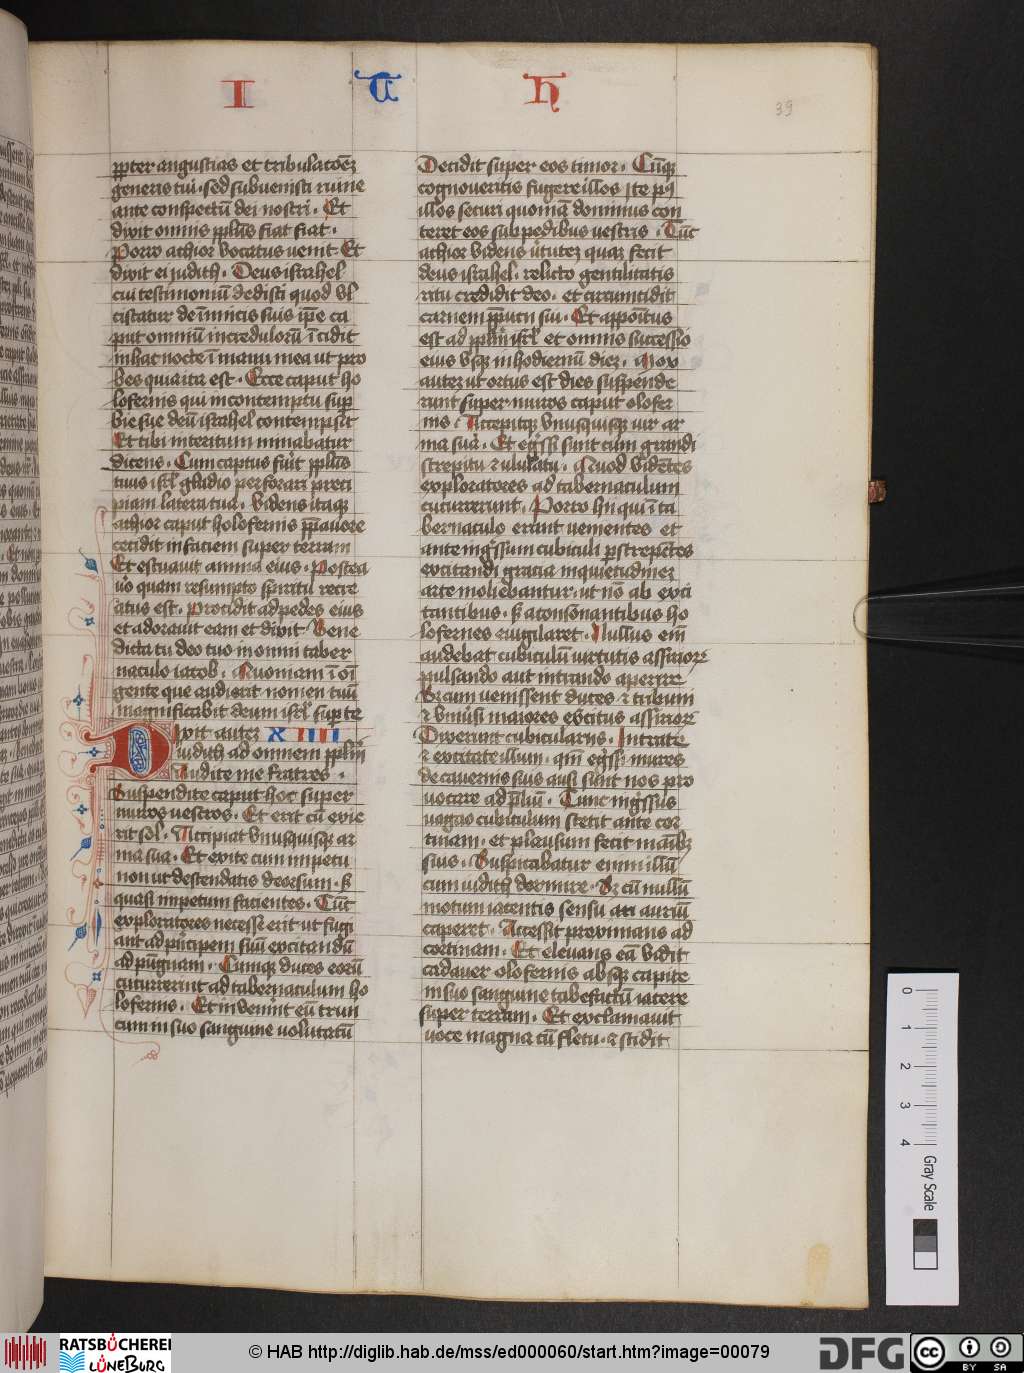 I U H
39
ꝓpter angustias et tribulacōēz
generis tui · sed subuenisti ruine
ante conspectū dei nostri · Et
dixit omnis pplūs fiat fiat ·
Porro achior vocatus uenit Et
dixit ei judith · Deus israhel
cui testimoniū dedisti quod vl
ciscatur de īimicis suis ip̄e ca
put omniū incredulorū īcidit
in hac nocte ī manu mea ut pro
bes quia ita est · Ecce caput ho
lofernis qui in contemptu supꝑ
bie sue deū israhel contempsit
Et tibi interitum minabatur
dicens · Cum captus fuīt pplūs
tuus isrl̄ gladio perforari preci
piam latera tua · Videns itaqꝫ
achior caput holofernis ꝑpauore
cecidit in faciem super terram
Et estuauit anima eius · Postea
uō quam resumpto spiritu recre
atus est · procidit ad pedes eius
et adorauit eam et dixit · Bene
dicta tu deo tuo in omni taber
naculo iacob · Quoniam ī oī
gente que audierit nomen tuū
magnificabit deum isrl̄ suꝑ te
Dixit autez XIIII
iudith ad omnem pplm̄
Audite me fratres ·
Suspendite caput hoc super
muros vestros · Et erit cū exie
rit sol · Accipiat vnusquisqꝫ ar
ma sua · Et exite cum impetu
non ut descendatis deorsum · sꝫ
quasi impetum facientes · Tūc
exploratores necesse erit ut fugi
ant ad principem suū excitandū
ad pūgnam · Cumqꝫ duces eorū
cucurrerint ad tabernaculum ho
lofernis · Et inuenīnt eū trun
cum in suo sanguine uolutatū
Decidit super eos timor · Cūqꝫ
cognoueritis fugere illos ite pꝰ
illos securi quoniā dominus con
teret eos sub pedibus vestris · Tūc
achior videns ūtutez quaꝫ fecit
deus israhel · relicto gentilitatis
ritu credidit deo · et circumcidit
carnem ꝓputii sui · Et appoītus
est ad pplm̄ isrl̄ et omnis successio
eius vsqꝫ in hodiernū diez · Mox
autez ut ortus est dies suspende
runt super muros caput olofer
nis · Accepitqꝫ vnusquisqꝫ uir ar
ma sua · Et egssi sunt cum grandi
strepitu ⁊ ululatu · Quod vidētes
exploratores ad tabernaculum
cucurrerunt · Porro hii qui ī ta
bernaculo erant uenientes et
ante ingssum cubiculi ꝑstrepētes
excitandi gracia inquietudinez
arte moliebantur · ut nō ab exci
tantibus · sꝫ a consonantibus ho
lofernes euigilaret · Nullus eīm
audebat cubiculū virtutis assirioꝝ
pulsando aut intrando aperire
Sz cum uenissent duces ⁊ tribuni
⁊ vniūsi maiores exercitus assirioꝝ
Dixerunt cubiculariis · Intrate
⁊ excitate illum · qm̄ egssi mures
de cauernis suis ausi sunt nos pro
uocare ad p̄liū · Tunc ingssus
uagao cubiculum stetit ante cor
tinam · et plausum fecit manibꝫ
suis · Suspicabatur enim illū
cum iudith dormire · Sz cū nullū
motum iacentis sensu auriū
caperet · Accessit proximans ad
cortinam · Et eleuans eā vidit
cadauer olofernis absqꝫ capite
in suo sanguine tabefactū iacere
super terram · Et exclamauit
uoce magna cū fletu · ⁊ scidit
0 1 2 3 4 Gray Scale
RATSBÜCHEREI
LÜNEBURG
© HAB http://diglib.hab.de/mss/ed000060/start.htm?image=00079
DFG
cc BY SA